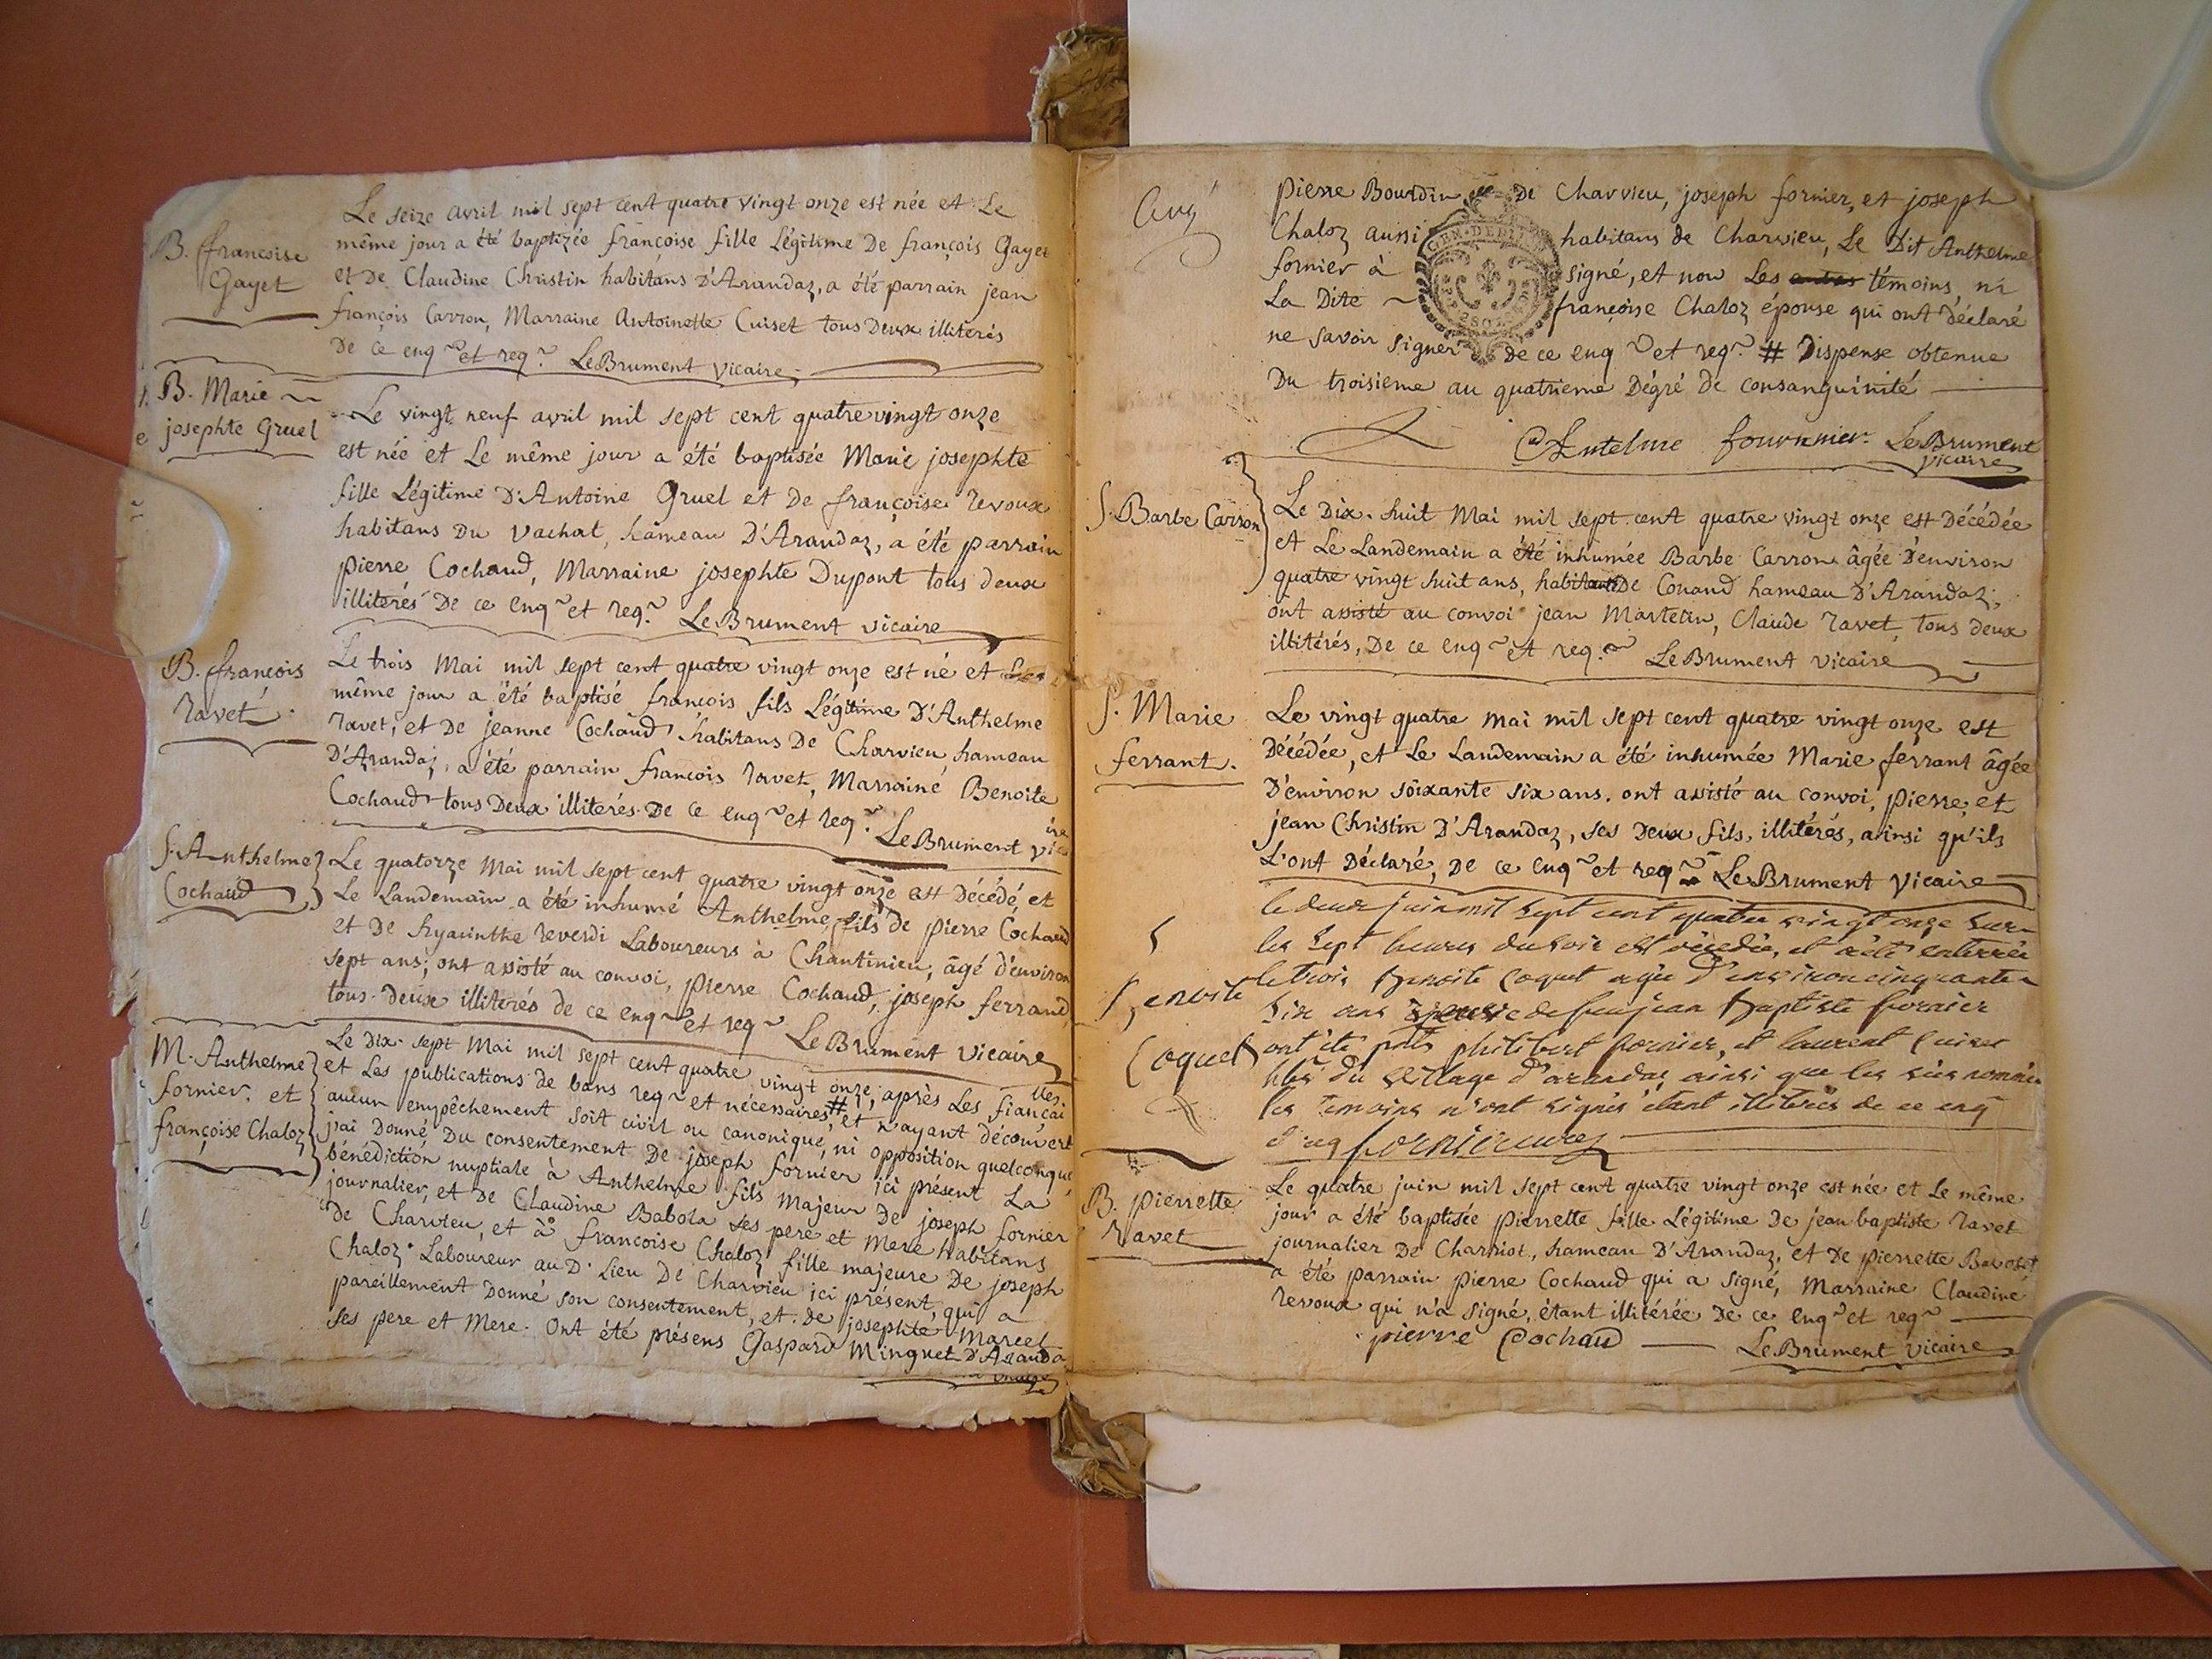 B. françoise
Gayet
Le seize avril mil sept cent quatre vingt onze est née et Le
même jour a été baptizée françoise fille Légitime De françois Gayet
et De Claudine Christin habitans D'Arandaz, a été parrain jean
françois Carron, Marraine Antoinette Cuiset tous Deux illiterés
De ce enq et req. LeBrument vicaire
B. Marie
josephte Gruel
Le vingt neuf avril mil sept cent quatre vingt onze
est née et Le même jour a été baptisée Marie josephte
fille Légitime D'Antoine Gruel et De françoise Revoux
habitans Du Vachat, hâmeau D'Arandaz, a été parrain
pierre Cochaud, Marraine josephte Dupont tous deux
illiterés De ce enq et req. LeBrument vicaire
B. françois
Ravet
Le trois Mai mil sept cent quatre vingt onze est né et Le
même jour a été baptisé françois fils Légitime D'Anthelme
Ravet, et De jeanne Cochaud habitans De Charvieu hameau
D'Arandaz, a été parrain francois Ravet, Marraine Benoite
Cochaud tous Deux illiterés De ce enq et req. LeBrument vicaire
S. Anthelme
Cochaud
Le quatorze Mai mil sept cent quatre vingt onze est Décédé, et
Le Landemain a été inhumé Anthelme, fils de pierre Cochaud
et De hyacinthe reverdi Laboureurs à Chantinieu, âgé d'environ
sept ans; ont assisté au convoi, pierre Cochaud, joseph ferrand,
tous deux illiterés de ce enq et req LeBrument Vicaire
M. Anthelme
fornier, et
françoise Chaloz
Le Dix-sept Mai mil sept cent quatre vingt onze, après Les fiançailles
et Les publications de bans req et nécessaires #, et n'ayant découvert
aucun empêchement soit civil ou canonique, ni opposition quelconque,
j'ai Donné, Du consentement De joseph fornier ici présent La
bénédiction nuptiale à Anthelme fils Majeur De joseph fornier
journalier, et De Claudine Babola ses pere et Mere habitans
de Charvieu, et à francoise Chaloz fille majeure De joseph
Chaloz Laboureur au D. Lieu De Charvieu ici présent, qui a
pareillement Donné son consentement, et de josephte Marcel
ses pere et Mere. Ont été présens Gaspard Minguet D'Aranda
pierre Bourdin De Charvieu, joseph fornier, et joseph
Chaloz aussi habitans de Charvieu, Le Dit Anthelme
fornier à signé, et non Les témoins, ni
La Dite françoise Chaloz épouse qui ont déclaré
ne savoir signer de ce enq et req. # Dispense obtenue
Du troisieme au quatrieme Dégré de consanguinité
Antelme fournier LeBrument
vicaire
GEN. DE DIJON
S. Barbe Carron
Le Dix-huit Mai mil sept cent quatre vingt onze est Décédée
et Le Landemain a été inhumée Barbe Carron âgée D'environ
quatre vingt huit ans, habitante De Conand hameau D'Arandaz;
ont assisté au convoi jean Martelin, Claude Ravet, tous deux
illitérés, De ce enq et req. LeBrument vicaire
S. Marie
ferrant.
Le vingt quatre mai mil sept cent quatre vingt onze est
Décédée, et Le Landemain a été inhumée Marie ferrant âgée
D'environ soixante six ans. ont assisté au convoi, pierre, et
jean Christin D'Arandaz, ses Deux fils, illitérés, ainsi qu'ils
L'ont Déclaré, De ce enq et req LeBrument Vicaire
S
Benoite
Coquet
le deux juin mil sept cent quatre vingt onze sur
les sept heures du soir est décédée, et a été enterrée
le trois Benoite Coquet agée d'environ cinquante
six ans de feu jean Baptiste fornier
ont été pnts philibert fornier, et laurent Cuiset
du village d'arandas ainsi que les sus nommés
les temoins n'ont signés etant illiterés de ce enq
et req fornier curé
B. pierrette
Ravet
Le quatre juin mil sept cent quatre vingt onze est née et Le même
jour a été baptisée pierrette fille Légitime De jean baptiste Ravet
journalier De Charriot, hameau D'Arandaz, et De pierrette
a été parrain pierre Cochaud qui a signé, Marraine Claudine
Revoux qui n'a signé, étant illitérée De ce enq et req
pierre Cochaud LeBrument Vicaire